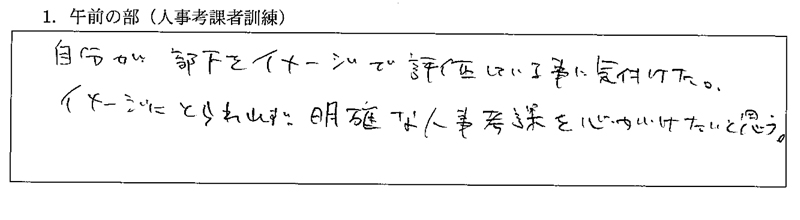 1. 午前の部（人事考課者訓練）
自分が部下をイメージで評価している事に気付けた。
イメージにとらわれず明確な人事考課を心がけたいと思う。